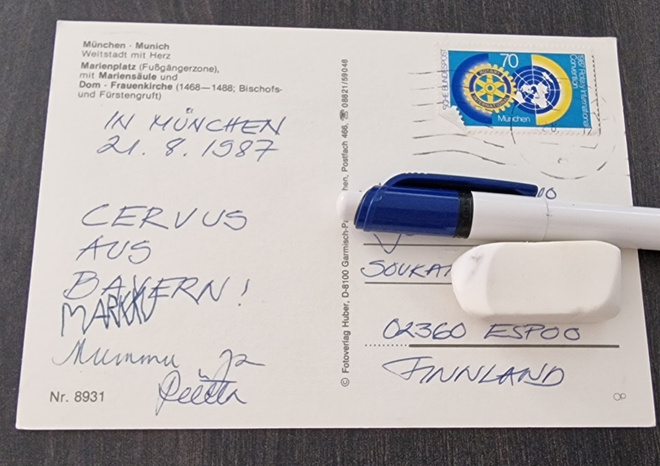 München · Munich
Weltstadt mit Herz
Marienplatz (Fußgängerzone),
mit Mariensäule und
Dom · Frauenkirche (1468—1488; Bischofs-
und Fürstengruft)
IN MÜNCHEN
21. 8. 1987
CERVUS
AUS
BAYERN!
MARKKU
Mummu ja
Nr. 8931
© Fotoverlag Huber, D-8100 Garmisch-Pa hen, Postfach 466, ☎ 08821/59048
70
München
SOUKA
02360 ESPOO
FINNLAND